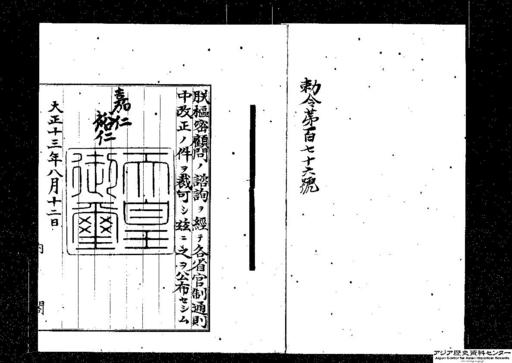 勅令第百七十六號
朕樞密顧問ノ諮詢ヲ經テ各省官制通則
中改正ノ件ヲ裁可シ玆ニ之ヲ公布セシム
嘉仁
裕仁
天皇
御璽
大正十三年八月十二日
内閣
アジア歴史資料センター
Japan Center for Asian Historical Records